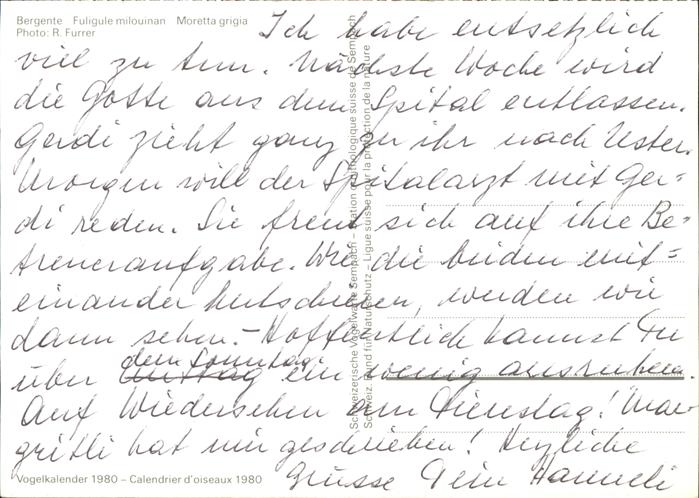 Bergente   Fuligule milouinan   Moretta grigia
Photo: R. Furrer
Ich habe entsetzlich
viel zu tun. Nächste Woche wird
die Gotte aus dem Spital entlassen.
Gerdi zieht ganz zu ihr nach Uster.
Morgen will der Spitalarzt mit Ger-
di reden. Sie freut sich auf ihre Be-
treueraufgabe. Wie die beiden mit-
einander kutschieren, werden wir
dann sehen. - Hoffentlich kannst Du
über den Sonntag ein wenig ausruhen.
Auf Wiedersehen am Dienstag! Mar-
gritli hat mir geschrieben! Herzliche
Grüsse Dein Hanneli
Vogelkalender 1980 – Calendrier d'oiseaux 1980
Schweizerische Vogelwarte Sempach – Station ornithologique suisse de Sempach
Schweiz. Bund für Naturschutz – Ligue suisse pour la protection de la nature